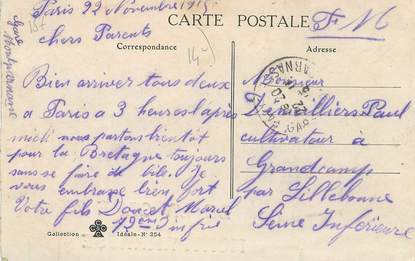 Paris 22 Novembre 1915
CARTE POSTALE
F M
Gare
Montparnasse
chers Parents
Correspondance
Adresse
Bien arriver tous deux
a Paris a 3 heures l'après
midi nous partons bientot
pour la Bretagne toujours
sans se faire de bile. Je
vous embrasse bien fort
Votre fils Doucet Marcel
79ème Infrie
Monsieur
Paul
cultivateur à
Grandcamp
par Lillebonne
Seine Inférieure
Collection
Idéale - N° 254